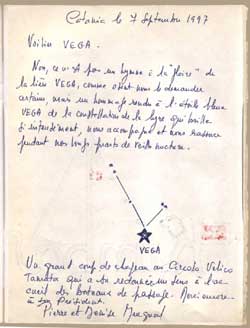 Catania le 7 Septembre 1997
Voilier VEGA.
Non, ce n'est pas un hymne à la "gloire" de
la bière VEGA, comme osent nous le demander
certains mais un hommage rendu à l'étoile bleue
VEGA de la constellation de la lyre qui brille
si intensément, nous accompagne et nous rassure
pendant nos longs quarts de veille nocturne.
VEGA
Un grand coup de chapeau au Circolo Velico
Tamata qui a su redonner un sens à l'ac-
cueil des bateaux de passage. Merci encore
à son Président.
Pierre et Denise